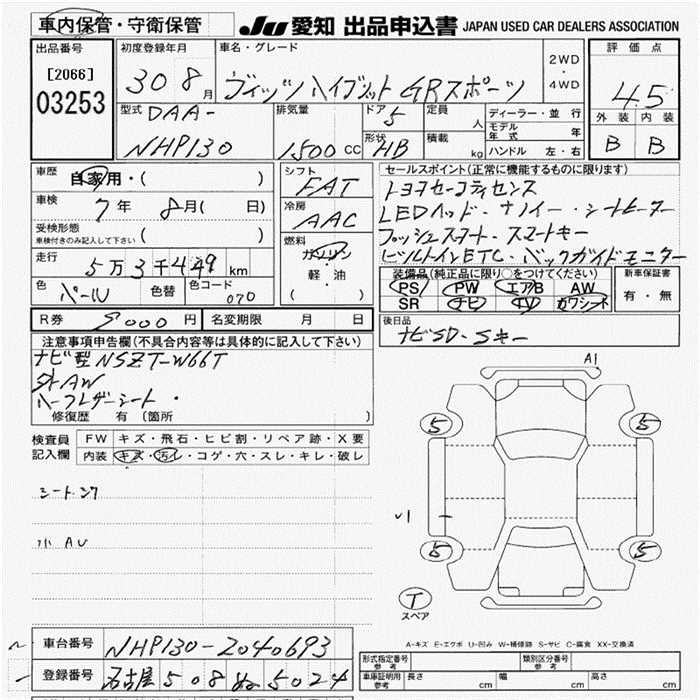 車内保管・守衛保管 JU 愛知 出品申込書 JAPAN USED CAR DEALERS ASSOCIATION
出品番号 初度登録年月 車名・グレード 2WD・4WD 評価点
[2066] 30 8月 ヴィッツ ハイブリット GRスポーツ 4.5
03253 型式 DAA- 排気量 ドア 5 定員 人 ディーラー・並行 外装 内装
NHP130 1500 CC 形状 HB 積載 kg モデル年式 年 B B
ハンドル 左・右
車歴 自家用・( ) シフト FAT セールスポイント(正常に機能するものに限ります)
車検 7年 8月( 日) 冷房 AAC トヨタセーフティセンス
受検形態 車検付きのみ記入して下さい ( ) LEDヘッド・ナノイー・シートヒーター
走行 5万3千449km 燃料 ガソリン・軽油 ( ) プッシュスタート・スマートキー
色 パール 色替 色コード 070 ビルトインETC・バックガイドモニター
装備品(純正品に限り○をつけてください) 新車保証書
PS PW エアB AW 有・無
SR ナビ TV カワシート
R券 9000円 名変期限 月 日 後日品
ナビSD・Sキー
注意事項申告欄(不具合内容等は具体的に記入して下さい)
ナビ型NSZT-W66T
社外AW
ハーフレザーシート・
修復歴 有(箇所 )
検査員記入欄 FW キズ・飛石・ヒビ割・リペア跡・X要
内装 キズ・汚レ・コゲ・穴・スレ・キレ・破レ
A1
5 5
シートスリ
小AU
5 5
T
スペア
A-キズ E-エクボ U-凹み W-補修跡 S-サビ C-腐食 XX-交換済
車台番号 NHP130-2040693
型式指定番号 参考 類別区分番号 参考
登録番号 名古屋 508 ぬ 5024
車庫証明用 参考 長さ cm 幅 cm 高さ cm